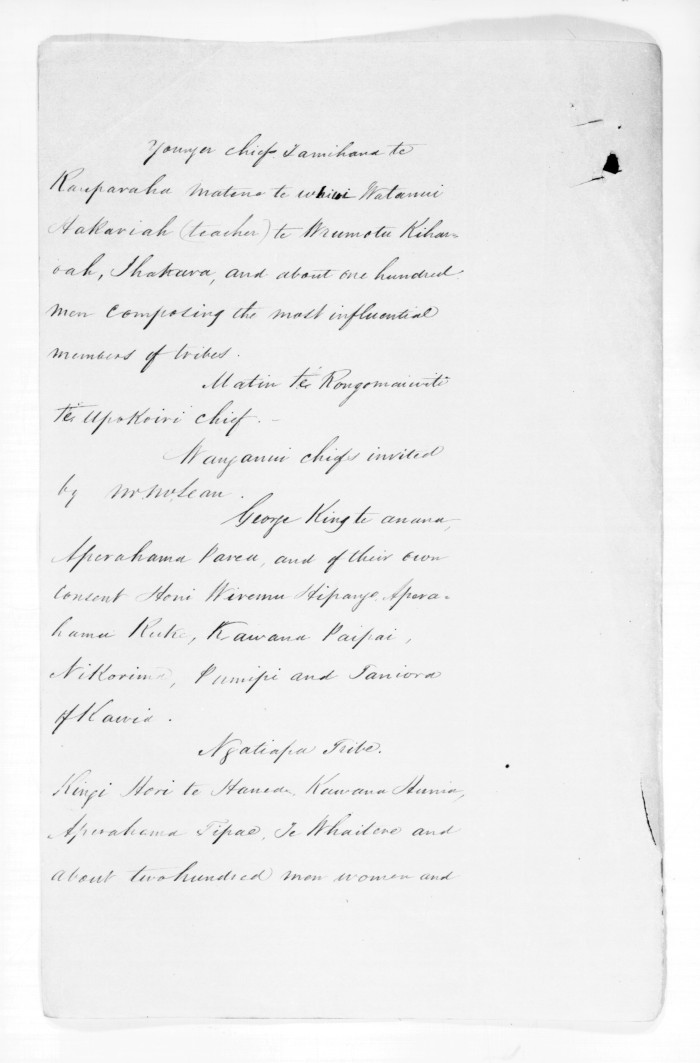 Younger chief Tamihana te
Rauparaha Matene te whiwi Watanui
Hakariah (teacher) te Waumotu Kihar=
oah, Ihakara, and about one hundred
men composing the most influential
members of tribes.
Matin te Rongomaiwiti
te Upokoiri chief. –
Wanganui chiefs invited
by Mr. McLean.
George King te anana,
Aperahama Parea, and of their own
consent Honi Wiremu Hipango, Apera=
hama Ruke, Kawana Paipai,
Nikorima, Pumipi and Taniora
of Kawia.
Ngatiapa Tribe.
Kingi Hori te Hanea, Kawana Hunia,
Aperahama Tipae, Te Whaitere and
about two hundred men women and